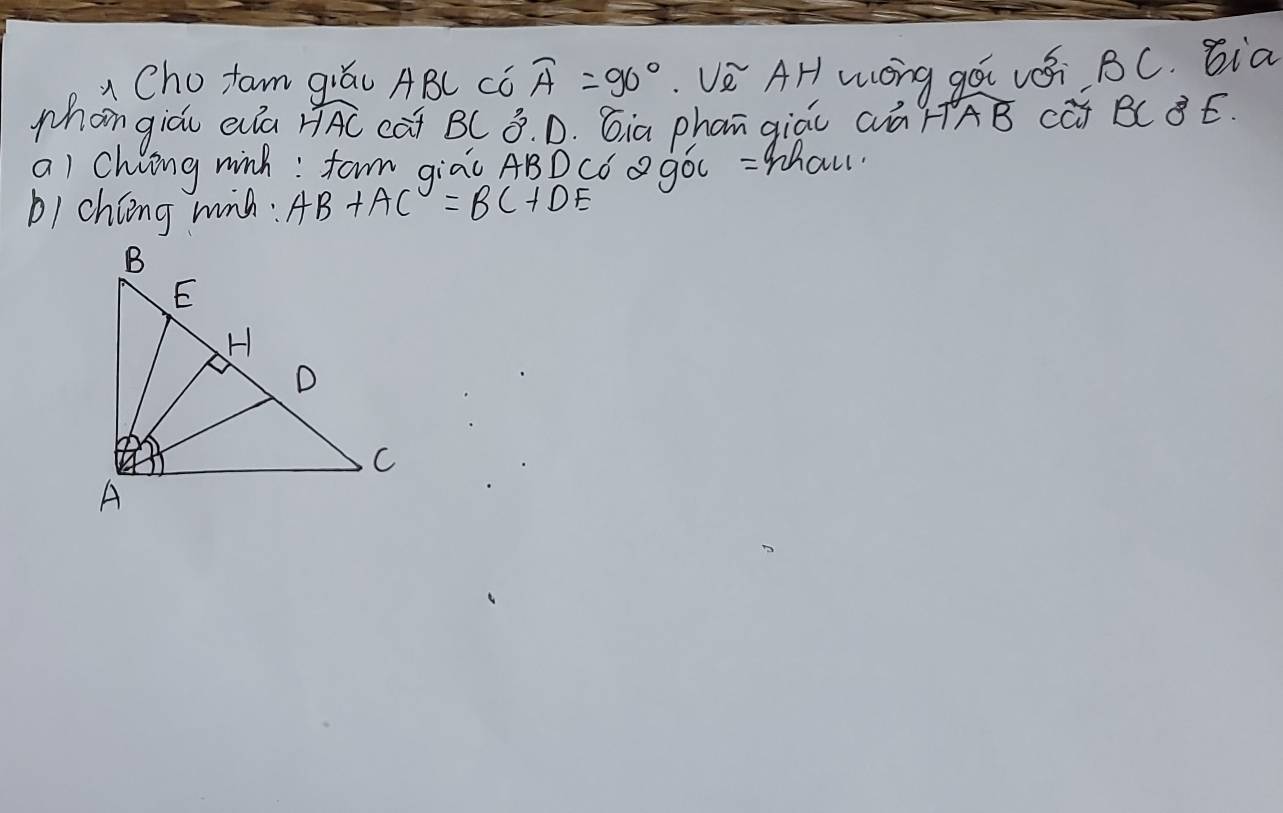 1 Cho tam giác ABC có Â = 90°. Vẽ AH vuông góc với BC. Tia
phân giác của HAC cắt BC ở D. Tia phân giác của HAB cắt BC ở E.
a) Chứng minh : tam giác ABD có 2 góc = nhau.
b) chứng minh : AB + AC = BC + DE
B
E
H
D
C
A